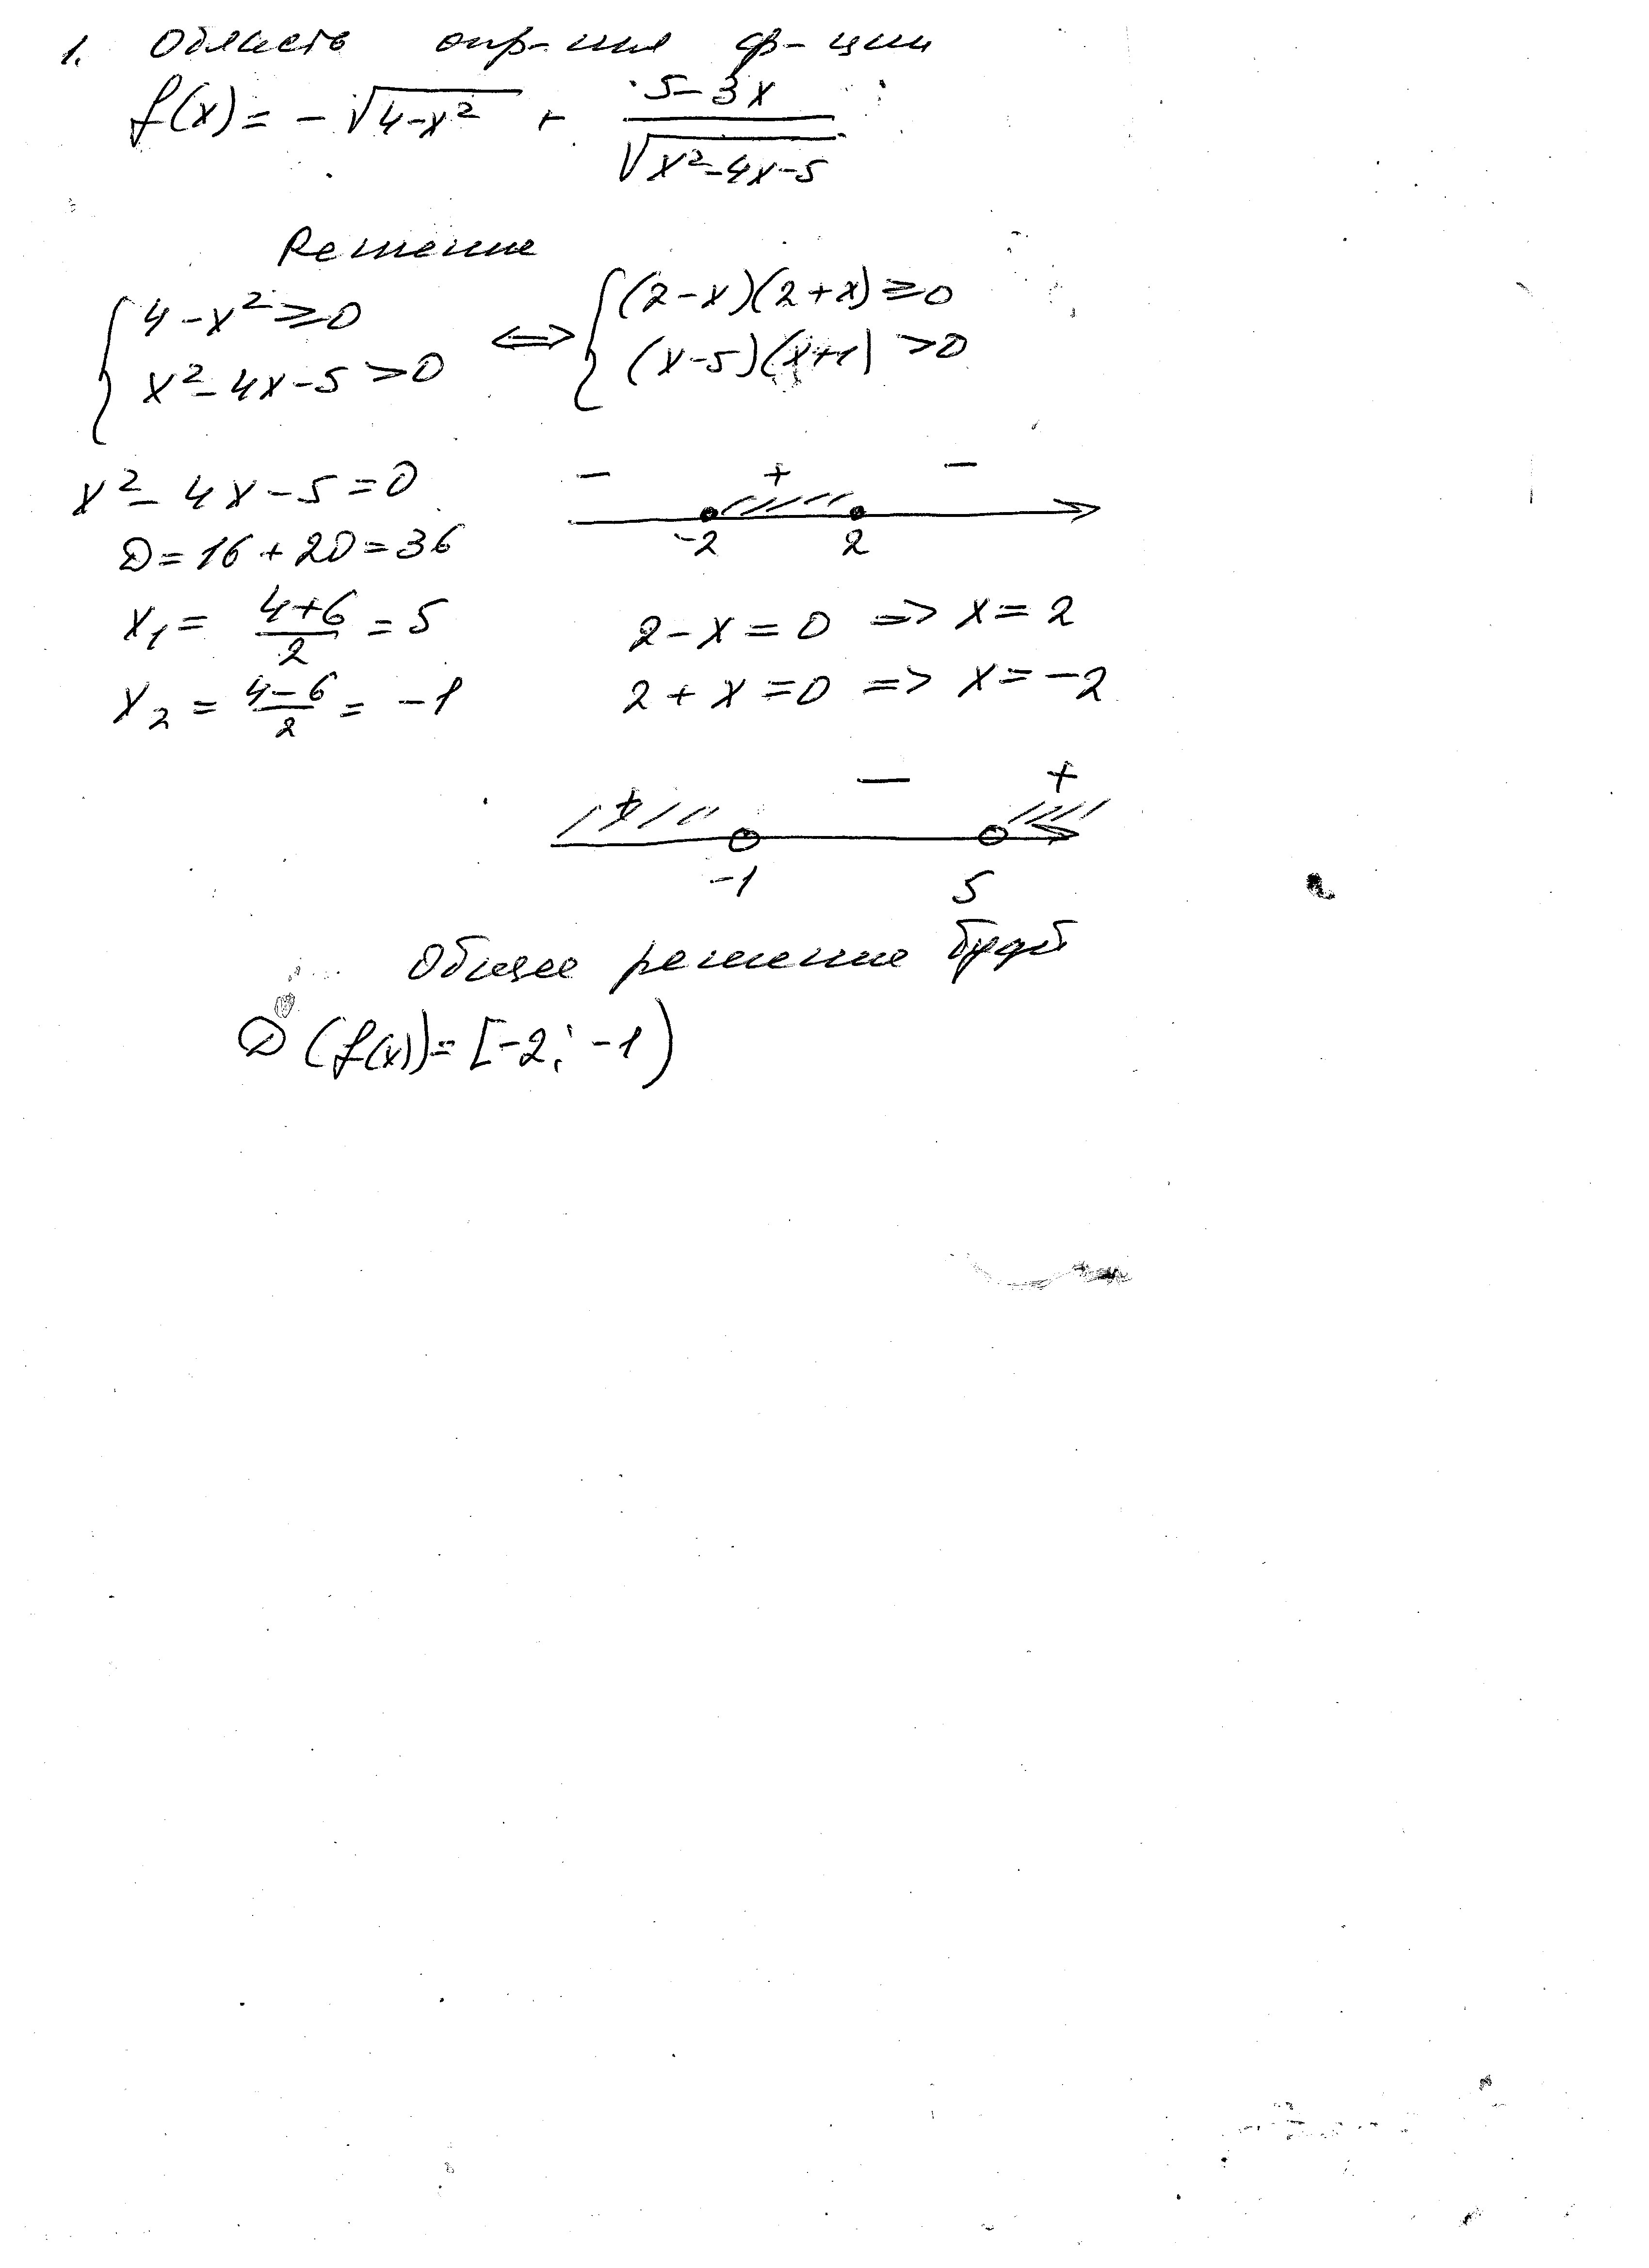 1. Область опр-ния ф-ции
f(x) = -√(4-x²) + (5-3x)/√(x²-4x-5)
Решение
{ 4-x² ≥ 0
x²-4x-5 > 0
⇔ { (2-x)(2+x) ≥ 0
(x-5)(x+1) > 0
x²-4x-5=0
D=16+20=36
x₁ = (4+6)/2 = 5
x₂ = (4-6)/2 = -1
- + -
-2 2
2-x=0 => x=2
2+x=0 => x=-2
+ - +
-1 5
Общее решение будет
D(f(x))=[-2; -1)